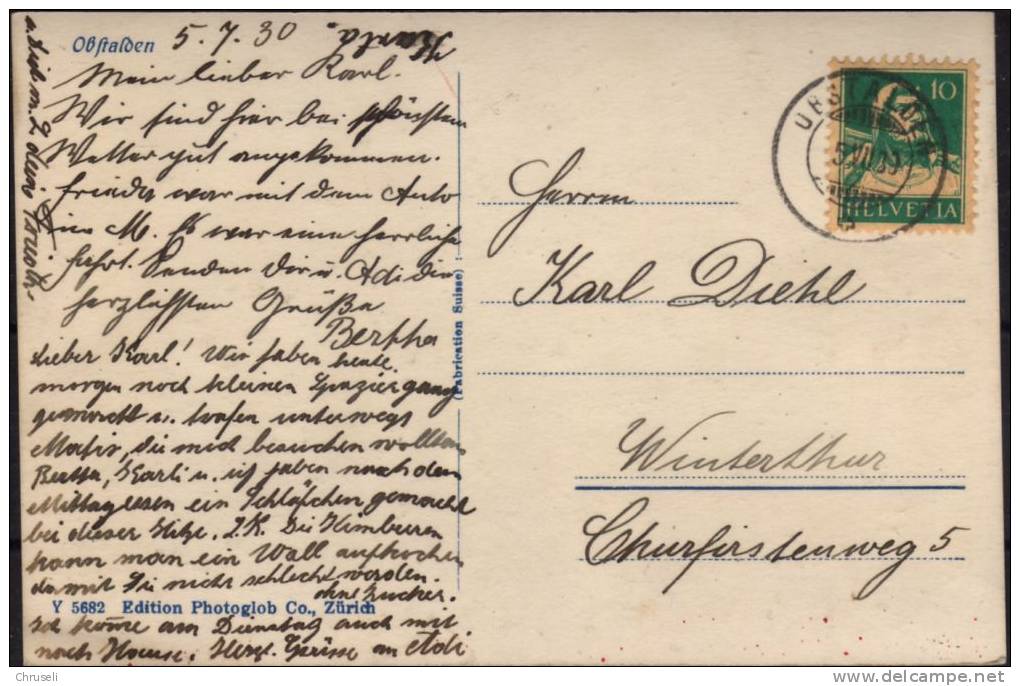 Obstalden 5.7.30
Mein lieber Karl.
Wir sind hier bei schönstem
Wetter gut angekommen.
Frieder war mit dem Auto
in M. Es war eine herrliche
Fahrt. Senden Dir u. Adi die
herzlichsten Grüße
Bertha
Lieber Karl! Wir haben heute
morgen noch kleinen Spaziergang
gemacht u. trafen unterwegs
die mich besuchen wollten
Bertha, Karli u. ich haben nach dem
Mittagessen ein Schläfchen gemacht
bei dieser Hitze. Die Himbeeren
kann man ein Wall aufkochen
damit Sie nicht schlecht werden.
ohne Zucker.
Y 5682 Edition Photoglob Co., Zürich
Ich komme am Dienstag auch mit
nach Hause. Herzl. Grüsse an Adi
(Fabrication Suisse)
10
HELVETIA
OBSTALDEN
Herrn
Karl Diehl
Winterthur
Churfirstenweg 5
Chruseli
delcampe.net